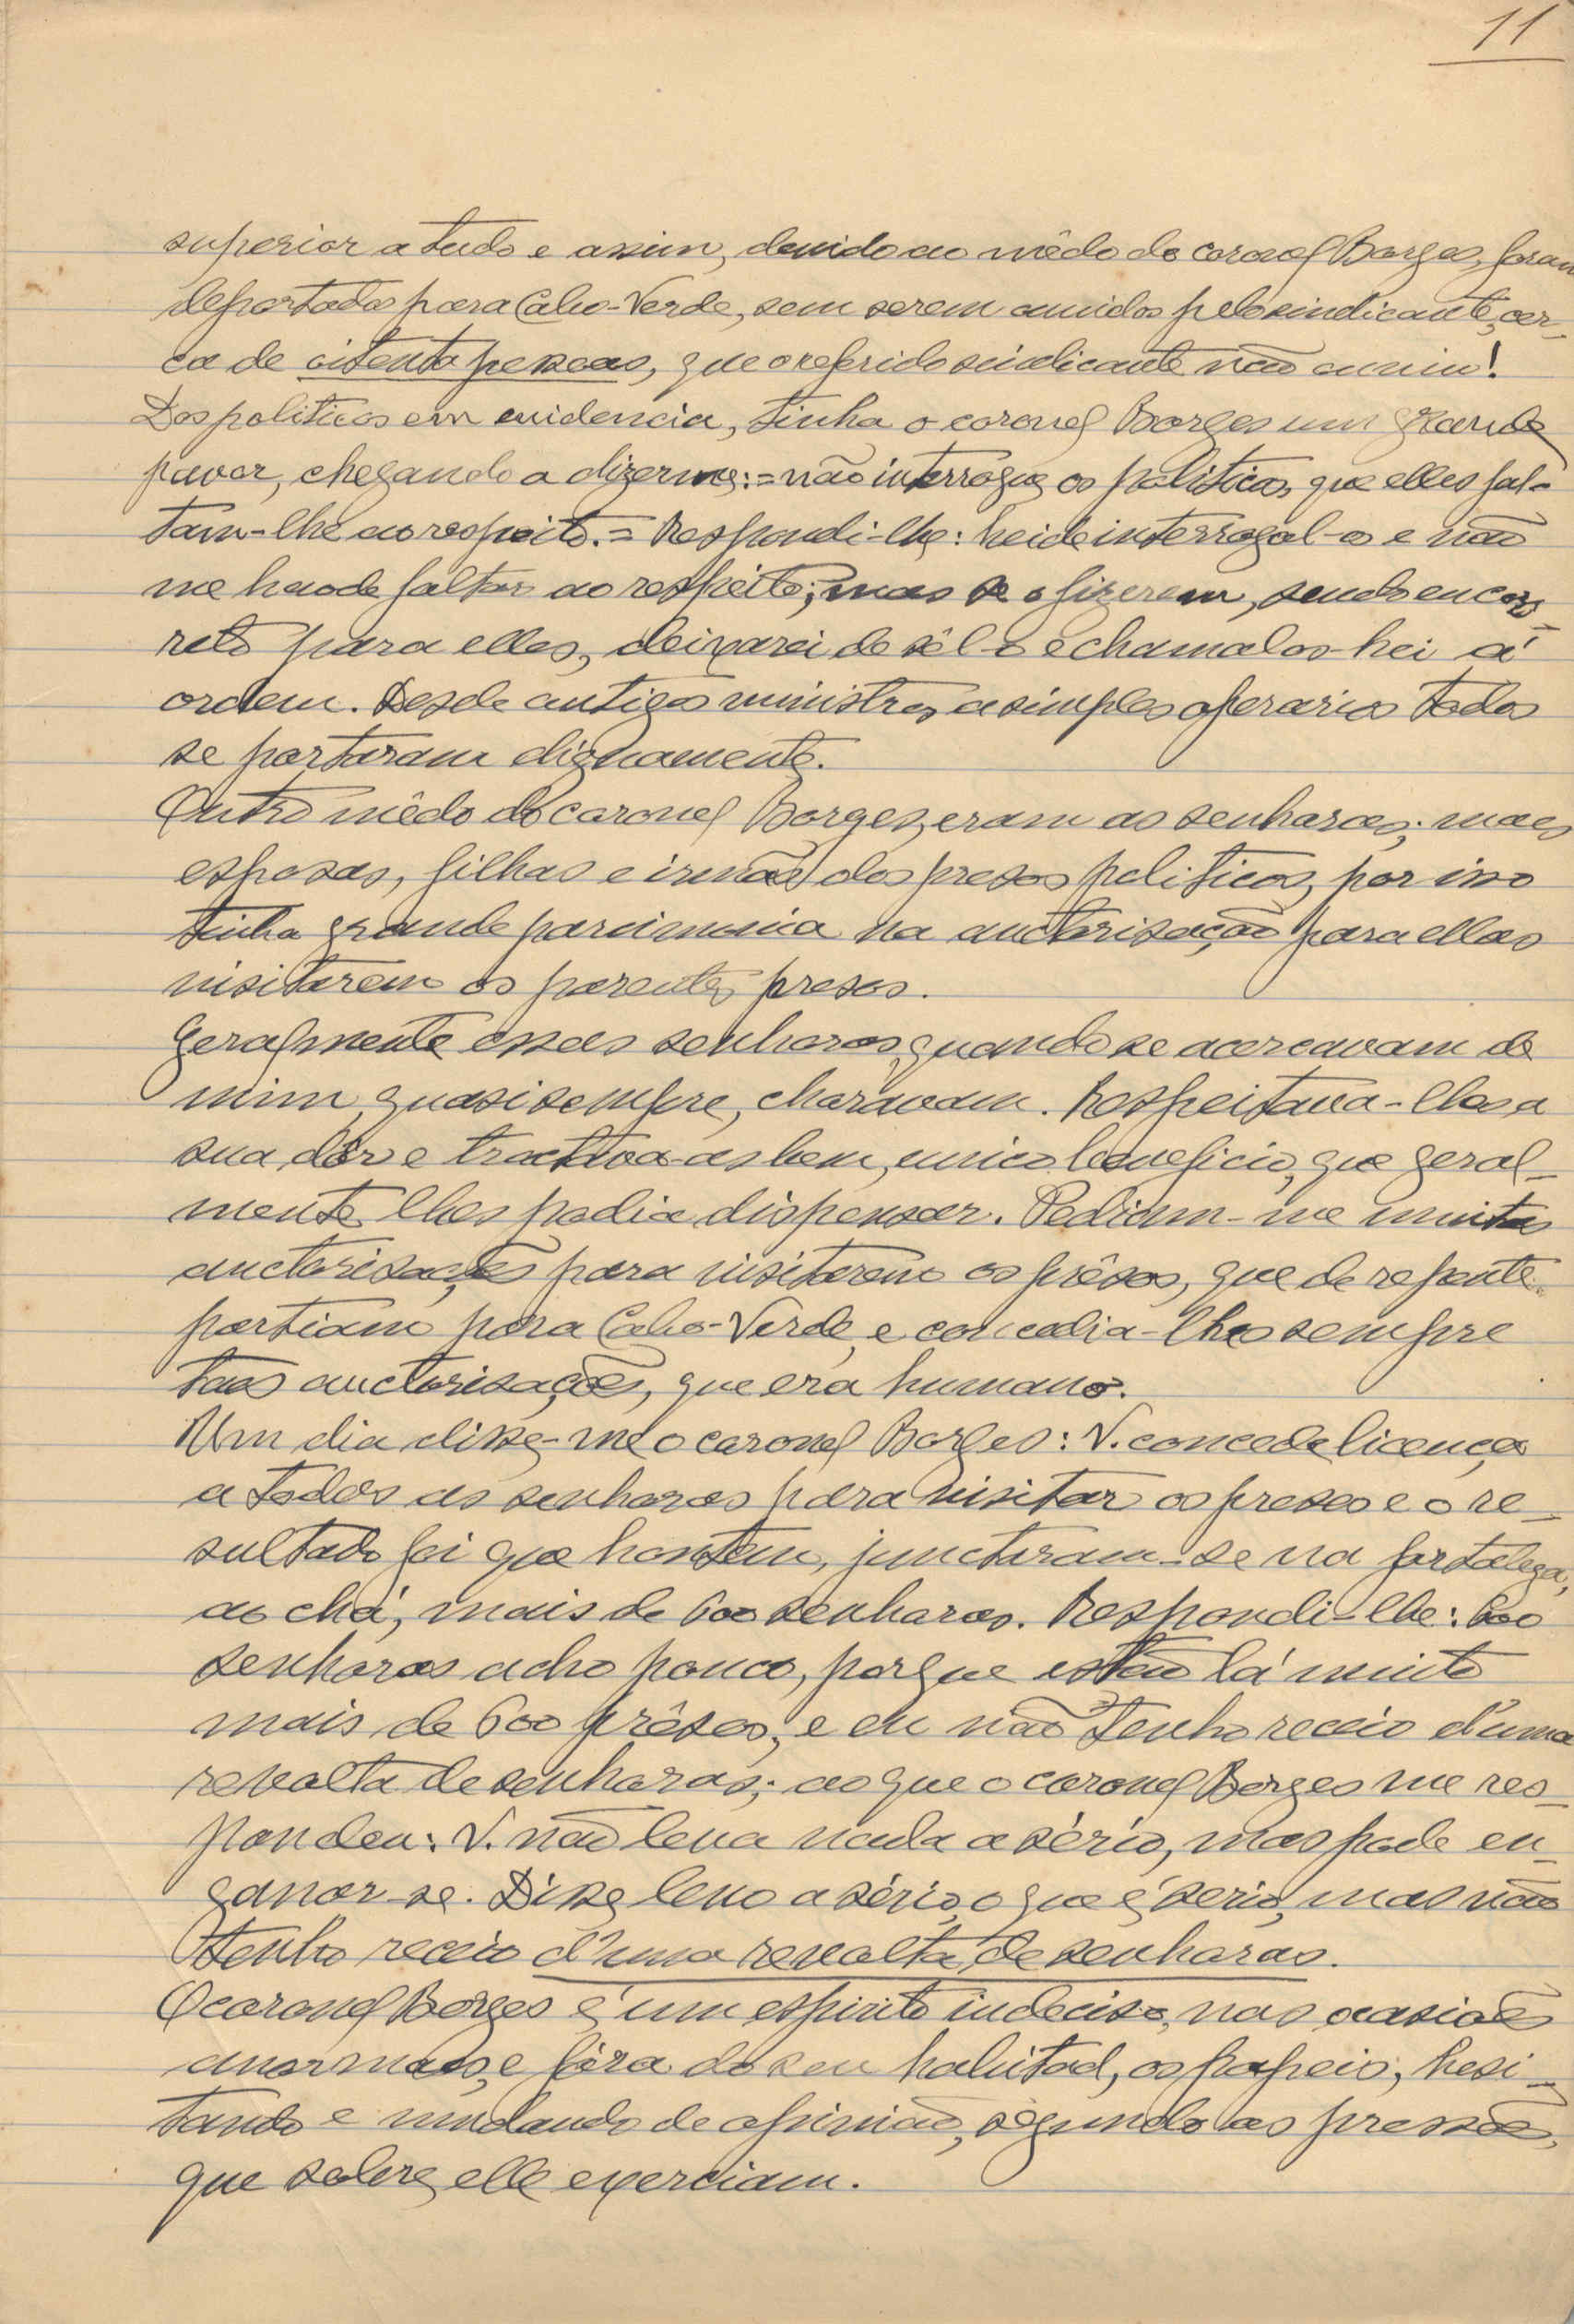 11
superior a tudo e assim, devido ao mêdo do coronel Borges, foram
deportados para Cabo-Verde, sem serem ouvidos pelo sindicante, cer-
ca de oitenta pessoas, que o referido sindicante não ouviu!
Dos politicos em evidencia, tinha o coronel Borges um grande
pavor, chegando a dizer-me: = não interrogue os politicos, que elles fal-
tam-lhe ao respeito. = Respondi-lhe: hei de interrogal-os e não
me hão de faltar ao respeito; mas se o fizerem, sendo eu cor-
reto para elles, deixarei de sêl-o e chamal-os-hei á
ordem. Desde antigos ministros a simples operarios todos
se portaram dignamente.
Outro mêdo do coronel Borges, eram as senhoras; mães
esposas, filhas e irmãs dos presos politicos, por isso
tinha grande parcimonia na auctorisação para ellas
visitarem os parentes presos.
Geralmente essas senhoras, quando se acercavam de
mim, quasi sempre, choravam. Respeitava-lhes a
sua dôr e tractava-as bem, unico beneficio, que geral-
mente lhes podia dispensar. Pediam-me muitas
auctorisações para visitarem os prêsos, que de repente
partiam para Cabo-Verde, e concedia-lhes sempre
taes auctorisações, que era humano.
Um dia disse-me o coronel Borges: V. concede licença
a todas as senhoras para visitar os presos e o re-
sultado foi que hontem, junctaram-se na fortaleza,
ao chá, mais de 600 senhoras. Respondi-lhe: 600
senhoras acho pouco, porque estão lá muito
mais de 600 prêsos; e eu não tenho receio d'uma
revolta de senhoras; ao que o coronel Borges me res-
pondeu: V. não leva nada a sério, mas pode en-
ganar-se. Disse, levo a sério, o que é serio, mas não
tenho receio d'uma revolta de senhoras.
O coronel Borges é um espirito indeciso, nas ocasiões
anormaes, e fóra do seu habitat, os papeis, hesi-
tando e mudando de opinião, segundo as pressões,
que sobre elle exerciam.